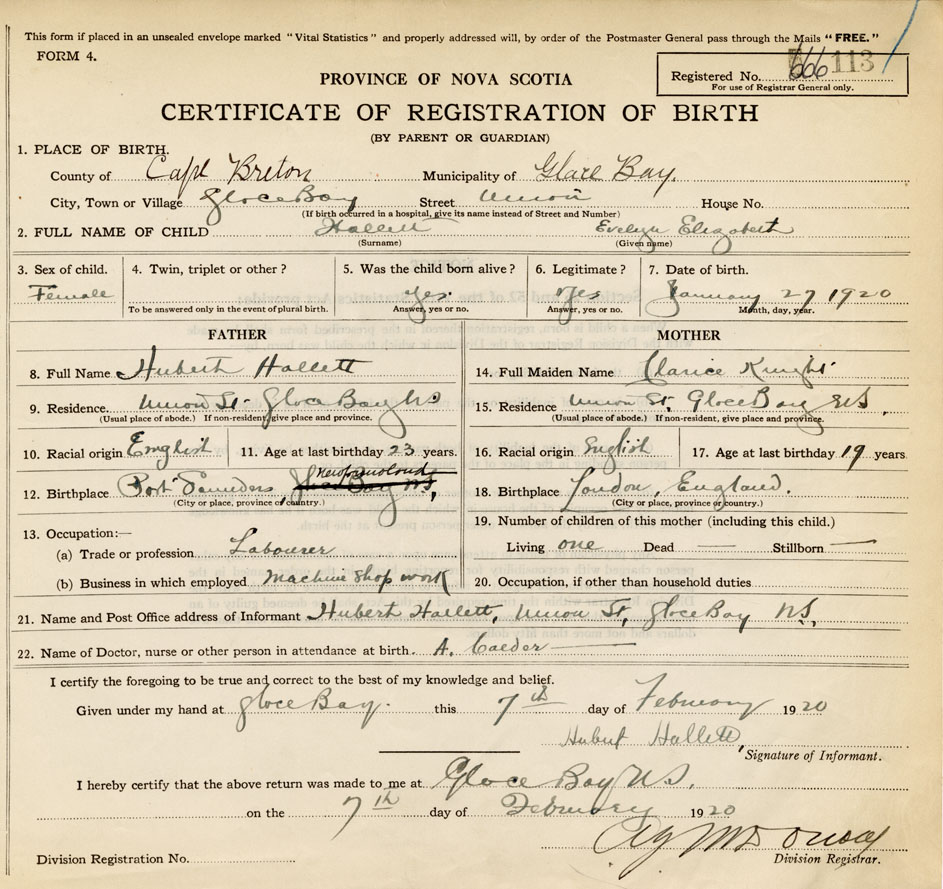 This form if placed in an unsealed envelope marked "Vital Statistics" and properly addressed will, by order of the Postmaster General pass through the Mails "FREE."
FORM 4.
PROVINCE OF NOVA SCOTIA
Registered No. 666 113
For use of Registrar General only.
CERTIFICATE OF REGISTRATION OF BIRTH
(BY PARENT OR GUARDIAN)
1. PLACE OF BIRTH.
County of Cape Breton Municipality of Glace Bay.
City, Town or Village Glace Bay Street Union House No.
(If birth occurred in a hospital, give its name instead of Street and Number)
2. FULL NAME OF CHILD Hallett Evelyn Elizabeth
(Surname) (Given name)
3. Sex of child. 4. Twin, triplet or other ? 5. Was the child born alive ? 6. Legitimate ? 7. Date of birth.
Female yes. yes January 27 1920
To be answered only in the event of plural birth. Answer, yes or no. Answer, yes or no. Month, day, year.
FATHER
8. Full Name Huberth Hallett
9. Residence. Union St. Glace Bay NS
(Usual place of abode.) If non-resident, give place and province.
10. Racial origin English 11. Age at last birthday 23 years.
Newfoundland
12. Birthplace Port Saunders Glace Bay NS,
(City or place, province or country.)
13. Occupation:—
(a) Trade or profession Labourer
(b) Business in which employed Machine Shop work
MOTHER
14. Full Maiden Name Clarice Knight
15. Residence Union St, Glace Bay NS,
(Usual place of abode.) If non-resident, give place and province.
16. Racial origin English 17. Age at last birthday 19 years
18. Birthplace London, England.
(City or place, province or country.)
19. Number of children of this mother (including this child.)
Living one Dead — Stillborn —
20. Occupation, if other than household duties
21. Name and Post Office address of Informant Hubert Hallett, Union St, Glace Bay NS,
22. Name of Doctor, nurse or other person in attendance at birth. A. Calder
I certify the foregoing to be true and correct to the best of my knowledge and belief.
Given under my hand at Glace Bay. this 7th day of February 1920
Hubert Hallett
Signature of Informant.
I hereby certify that the above return was made to me at Glace Bay NS,
on the 7th day of February 1920
Division Registration No. Division Registrar.